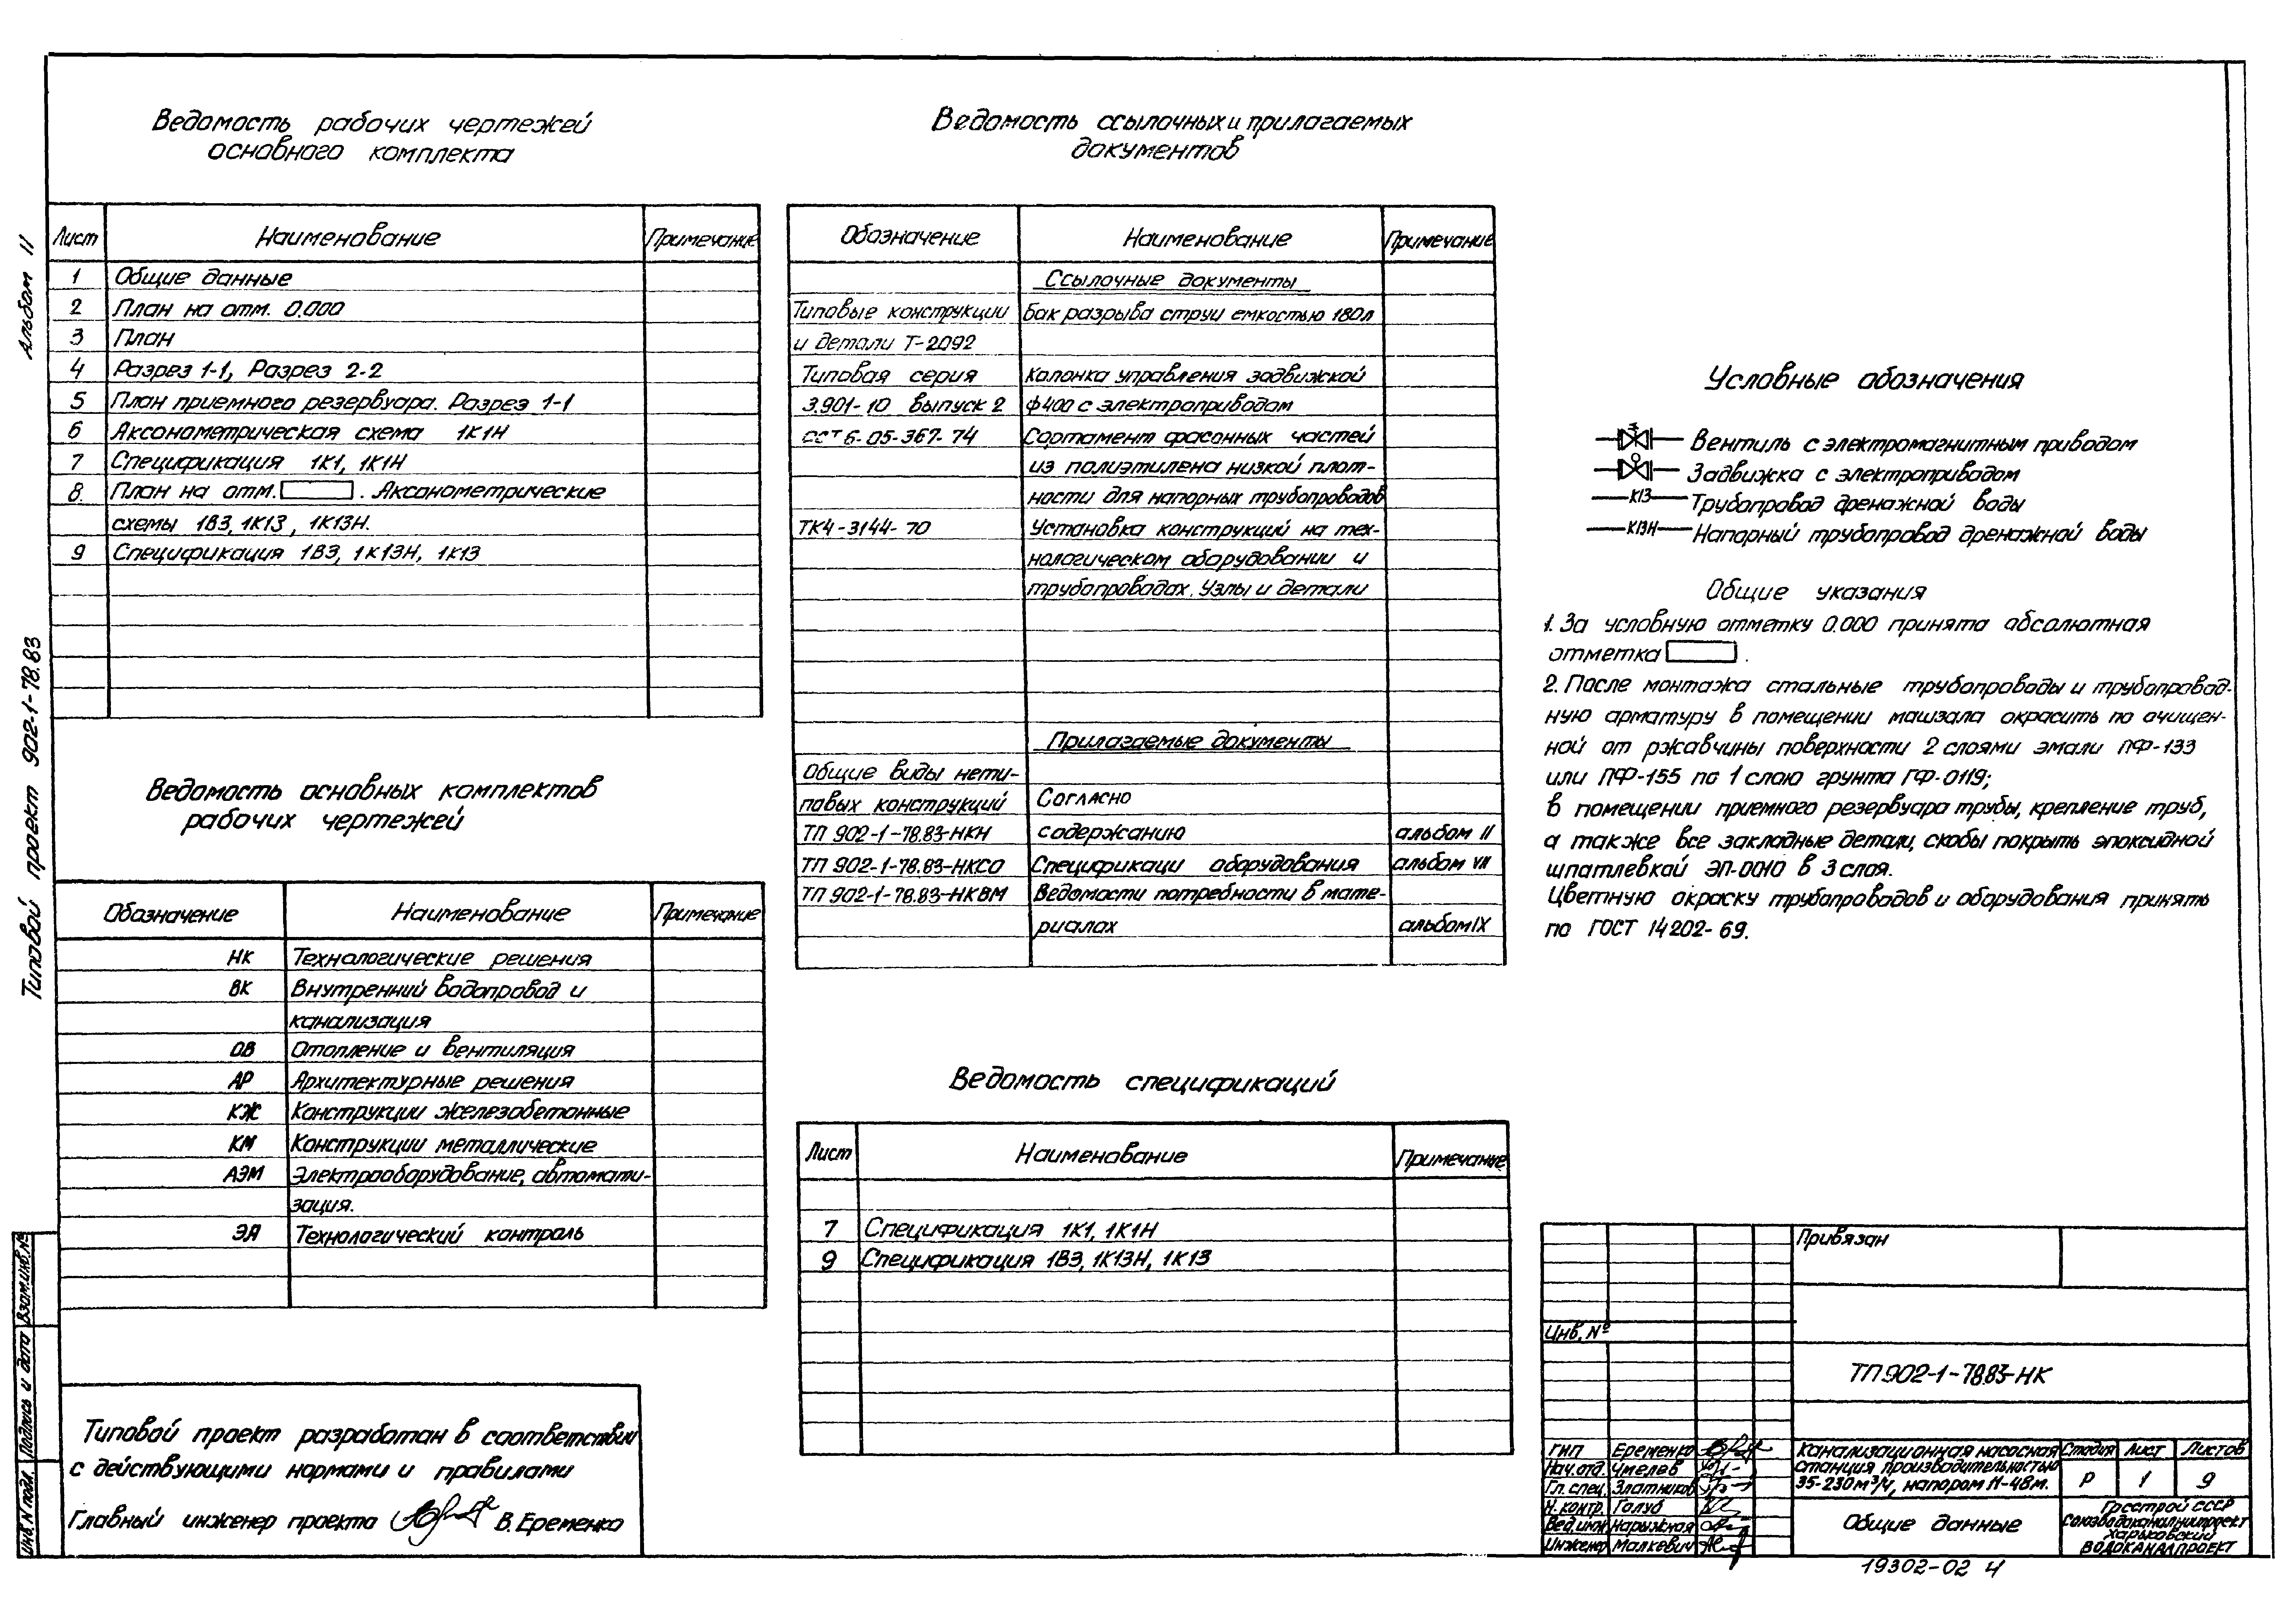 Альбом II
Типовой проект 902-1-78.83
Ведомость рабочих чертежей
основного комплекта
Лист Наименование Примечание
1 Общие данные
2 План на отм. 0.000
3 План
4 Разрез 1-1, Разрез 2-2
5 План приемного резервуара. Разрез 1-1
6 Аксонометрическая схема 1К1Н
7 Спецификация 1К1, 1К1Н
8. План на отм. . Аксонометрические
схемы 1В3, 1К13, 1К13Н.
9 Спецификация 1В3, 1К13Н, 1К13
Ведомость основных комплектов
рабочих чертежей
Обозначение Наименование Примечание
НК Технологические решения
ВК Внутренний водопровод и
канализация
ОВ Отопление и вентиляция
АР Архитектурные решения
КЖ Конструкции железобетонные
КМ Конструкции металлические
АЭМ Электрооборудование, автомати-
зация.
ЭА Технологический контроль
Типовой проект разработан в соответствии
с действующими нормами и правилами
Главный инженер проекта В. Еременко
Ведомость ссылочных и прилагаемых
документов
Обозначение Наименование Примечание
Ссылочные документы
Типовые конструкции Бак разрыва струи емкостью 180л
и детали Т-2092
Типовая серия Колонка управления задвижкой
3.901-10 выпуск 2 ф400 с электроприводом
ОСТ 6-05-367-74 Сортамент фасонных частей
из полиэтилена низкой плот-
ности для напорных трубопроводов
ТК4-3144-70 Установка конструкций на тех-
нологическом оборудовании и
трубопроводах. Узлы и детали
Прилагаемые документы
Общие виды нети-
повых конструкций Согласно
ТП 902-1-78.83-НКН содержанию альбом II
ТП 902-1-78.83-НКСО Спецификаци оборудования альбом VII
ТП 902-1-78.83-НКВМ Ведомости потребности в мате-
риалах альбом IX
Ведомость спецификаций
Лист Наименование Примечание
7 Спецификация 1К1, 1К1Н
9 Спецификация 1В3, 1К13Н, 1К13
Условные обозначения
Вентиль с электромагнитным приводом
Задвижка с электроприводом
К13 Трубопровод дренажной воды
К13Н Напорный трубопровод дренажной воды
Общие указания
1. За условную отметку 0.000 принята абсолютная
отметка .
2. После монтажа стальные трубопроводы и трубопровод-
ную арматуру в помещении машзала окрасить по очищен-
ной от ржавчины поверхности 2 слоями эмали ПФ-133
или ПФ-155 по 1 слою грунта ГФ-0119;
в помещении приемного резервуара трубы, крепление труб,
а также все закладные детали, скобы покрыть эпоксидной
шпатлевкой ЭП-0010 в 3 слоя.
Цветную окраску трубопроводов и оборудования принять
по ГОСТ 14202-69.
Привязан
Инв. №
ТП 902-1-78.83-НК
ГИП Еременко
Нач.отд. Чмелев
Гл. спец. Златников
Н. контр. Голуб
Вед.инж Нарыжная
Инженер Малкевич
Канализационная насосная
станция производительностью
35-230м³/ч, напором 11-48м.
Стадия Лист Листов
Р 1 9
Общие данные
Госстрой СССР
Союзводоканалниипроект
Харьковский
ВОДОКАНАЛПРОЕКТ
19302-02 4
Инв.№ подл. Подпись и дата Взам.инв.№